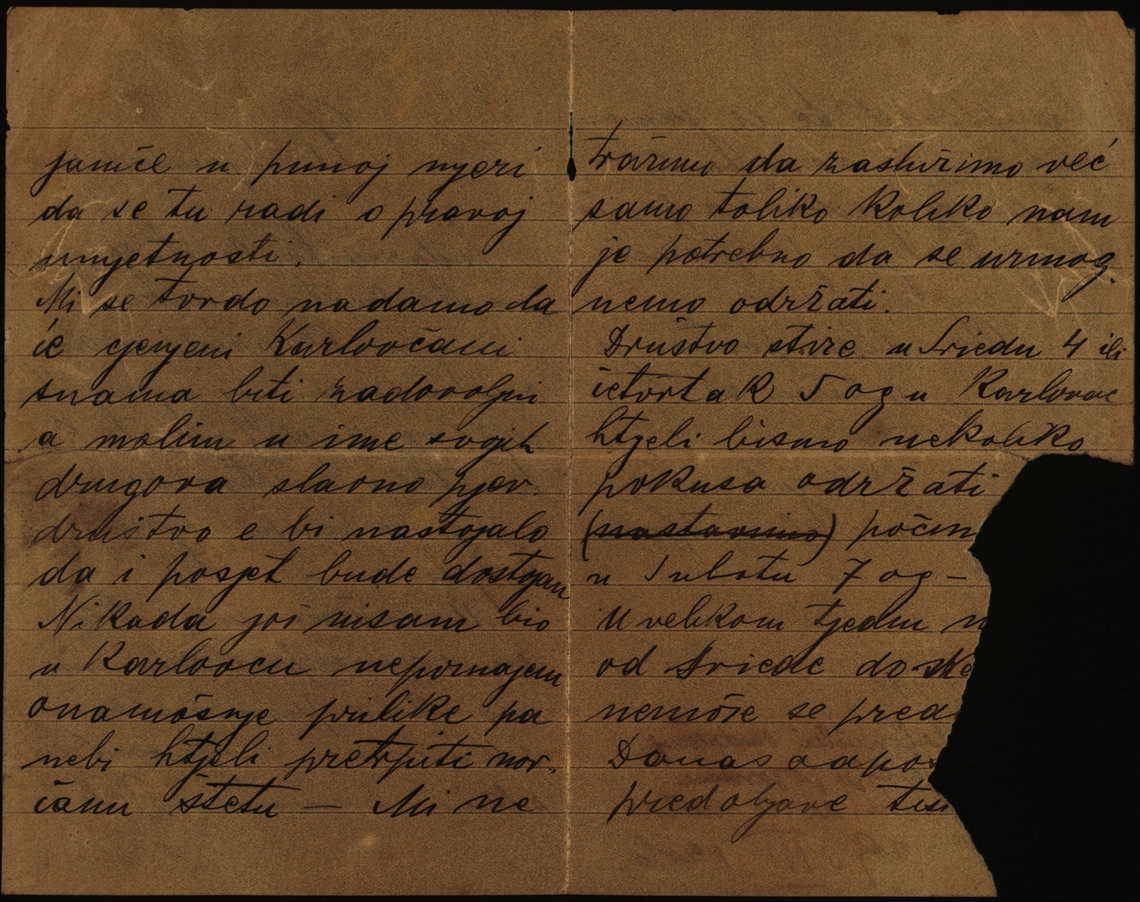 jamče u punoj mjeri
da se tu radi o pravoj
umjetnosti.
Mi se tvrdo nadamo da
će cjenjeni Karlovčani
snama biti zadovoljni
a molim u ime svojih
drugova slavno pjev.
društvo e bi nastojalo
da i posjet bude dostojan
Nikada još nisam bio
u Karlovcu nepoznajem
onamošnje prilike pa
nebi htjeli pretrpiti nov.
čanu štetu — Mi ne
tražimo da zaslužimo već
samo toliko koliko nam
je potrebno da se uzmog.
nemo održati.
Društvo stiže u Sriedu 4 ili
četvrtak 5 og u Karlovac
htjeli bismo nekoliko
pokusa održati
(nastavimo) počm
u Subotu 7 og —
U velikom tjednu
od Sriede do
nemože se pred
Danas odpo
predoljave